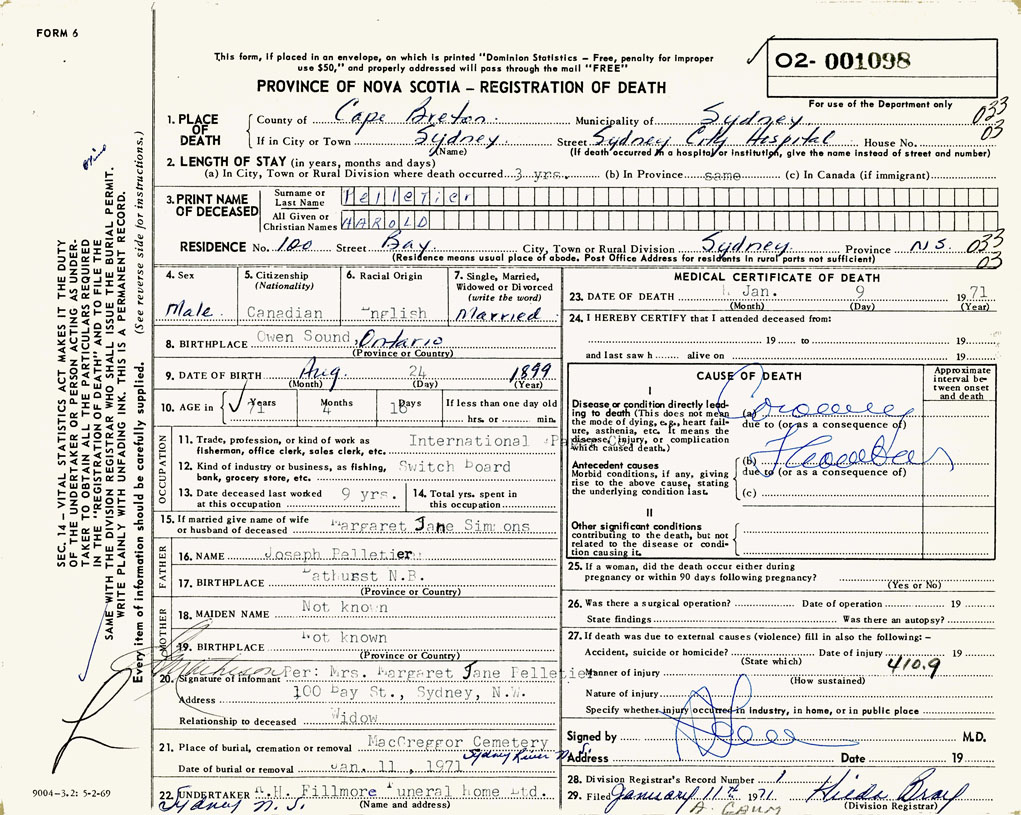 FORM 6
This form, if placed in an envelope, on which is printed "Dominion Statistics – Free, penalty for improper
use $50," and properly addressed will pass through the mail "FREE"
02- 001098
For use of the Department only
PROVINCE OF NOVA SCOTIA – REGISTRATION OF DEATH
1. PLACE OF DEATH
County of Cape Breton Municipality of Sydney 033
If in City or Town Sydney Street Sydney City Hospital House No. 03
(Name) (If death occurred in a hospital or institution, give the name instead of street and number)
2. LENGTH OF STAY (in years, months and days)
(a) In City, Town or Rural Division where death occurred 3 yrs. (b) In Province same (c) In Canada (if immigrant)
3. PRINT NAME OF DECEASED
Surname or Last Name Pelletier
All Given or Christian Names HAROLD
RESIDENCE No. 100 Street Bay City, Town or Rural Division Sydney Province N.S. 033
(Residence means usual place of abode. Post Office Address for residents in rural parts not sufficient) 03
4. Sex
Male
5. Citizenship
(Nationality)
Canadian
6. Racial Origin
nglish
7. Single, Married,
Widowed or Divorced
(write the word)
Married
8. BIRTHPLACE Owen Sound, Ontario
(Province or Country)
9. DATE OF BIRTH Aug. 24 1899
(Month) (Day) (Year)
10. AGE in Years Months Days If less than one day old
71 4 16 hrs. or min.
OCCUPATION
11. Trade, profession, or kind of work as International
fisherman, office clerk, sales clerk, etc.
12. Kind of industry or business, as fishing, Switch board
bank, grocery store, etc.
13. Date deceased last worked 9 yrs. 14. Total yrs. spent in
at this occupation this occupation
15. If married give name of wife Margaret Jane Simmons
or husband of deceased
FATHER
16. NAME Joseph Pelletier
17. BIRTHPLACE Bathurst N.B.
(Province or Country)
MOTHER
18. MAIDEN NAME Not known
19. BIRTHPLACE Not known
(Province or Country)
20. Signature of informant Per: Mrs. Margaret Jane Pelletier
Address 100 Bay St., Sydney, N.W.
Relationship to deceased Widow
21. Place of burial, cremation or removal MacGreggor Cemetery
Sydney River N.S.
Date of burial or removal Jan. 11, 1971
22. UNDERTAKER A.H. Fillmore Funeral Home Ltd.
Sydney N.S. (Name and address)
MEDICAL CERTIFICATE OF DEATH
23. DATE OF DEATH Jan. 9 1971
(Month) (Day) (Year)
24. I HEREBY CERTIFY that I attended deceased from:
19 to 19
and last saw h alive on 19
CAUSE OF DEATH
Approximate
interval be-
tween onset
and death
I
Disease or condition directly lead-
ing to death (This does not mean
the mode of dying, e.g., heart fail-
ure, asthenia, etc. It means the
disease, injury, or complication
which caused death.)
(a) Coronary
due to (or as a consequence of)
Antecedent causes
Morbid conditions, if any, giving
rise to the above cause, stating
the underlying condition last.
(b) Thrombosis
due to (or as a consequence of)
(c)
II
Other significant conditions
contributing to the death, but not
related to the disease or condi-
tion causing it.
25. If a woman, did the death occur either during
pregnancy or within 90 days following pregnancy?
(Yes or No)
26. Was there a surgical operation? Date of operation 19
State findings Was there an autopsy?
27. If death was due to external causes (violence) fill in also the following: –
Accident, suicide or homicide? Date of injury 19
(State which) 410.9
Manner of injury
(How sustained)
Nature of injury
Specify whether injury occurred in industry, in home, or in public place
Signed by M.D.
Address Date 19
28. Division Registrar's Record Number 1
29. Filed January 11th 1971 Hilda Bray
(Division Registrar)
SEC. 14 – VITAL STATISTICS ACT MAKES IT THE DUTY
OF THE UNDERTAKER OR PERSON ACTING AS UNDER-
TAKER TO OBTAIN ALL THE PARTICULARS REQUIRED
IN THE "REGISTRATION OF DEATH" AND TO FILE THE
SAME WITH THE DIVISION REGISTRAR WHO SHALL ISSUE THE BURIAL PERMIT.
WRITE PLAINLY WITH UNFADING INK. THIS IS A PERMANENT RECORD.
Every item of information should be carefully supplied. (See reverse side for instructions.)
9004-3.2: 5-2-69